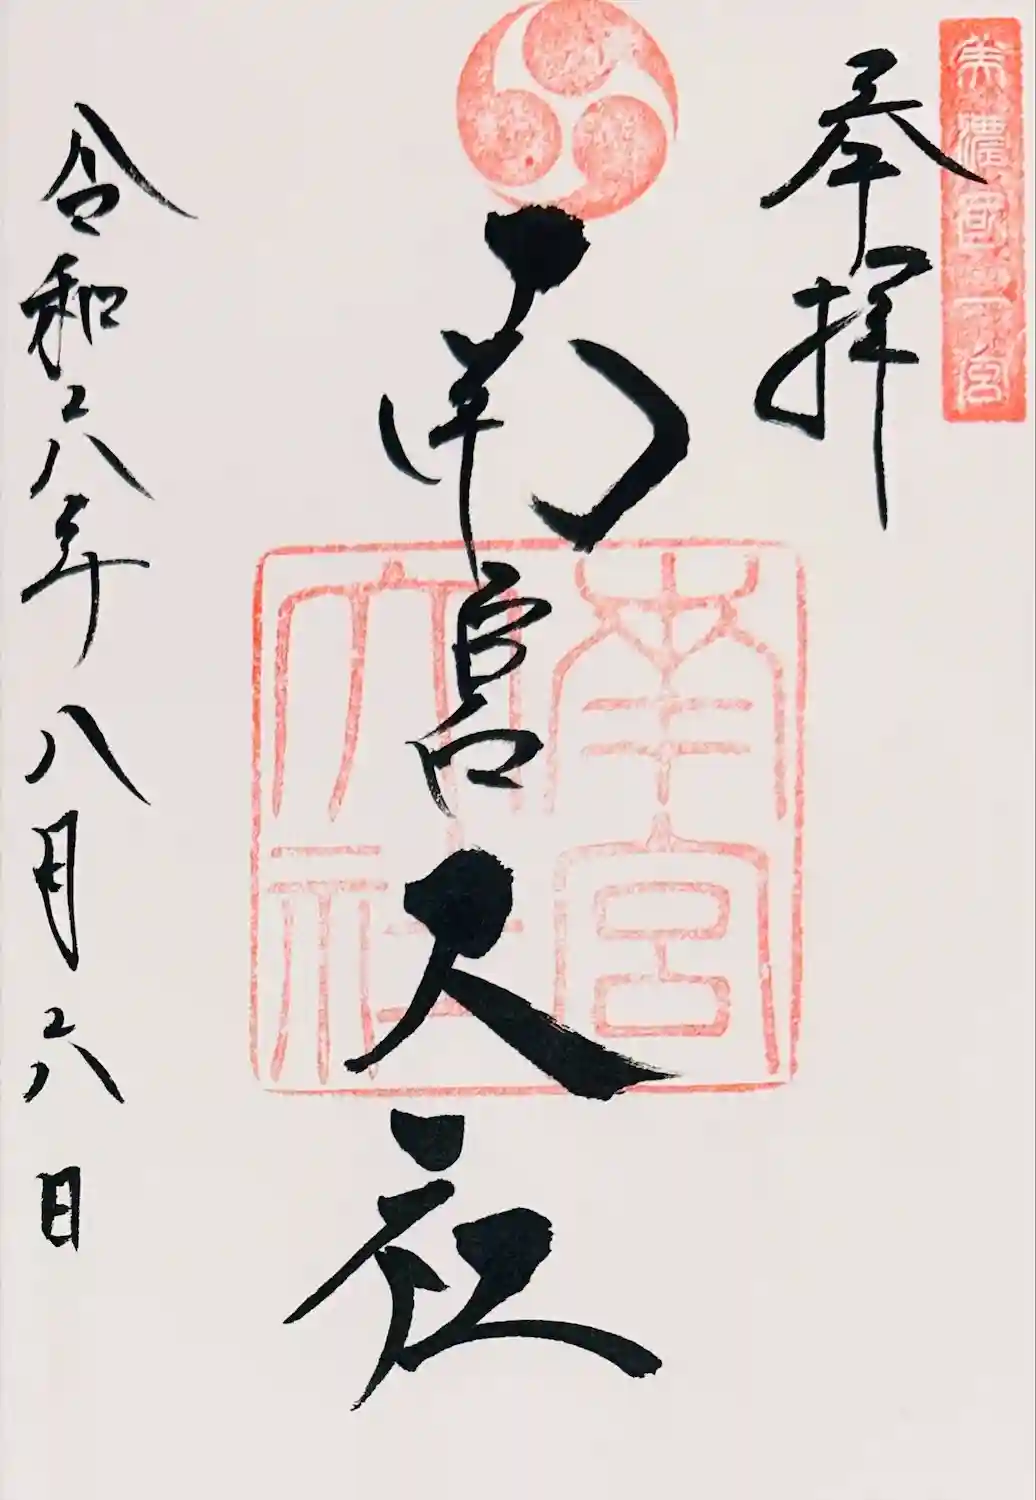 美濃國一宮
奉拝
南宮大社
南宮
大社
令和六年八月六日